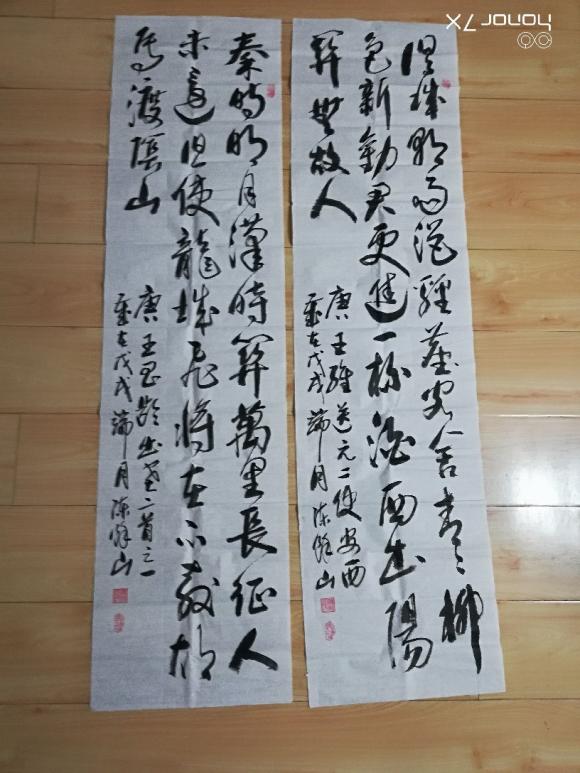 honor 7X
渭城朝雨浥輕塵客舍青々柳
色新勸君更進一杯酒西出陽
關無故人
唐王維送元二使安西
歲在戊戌端月陳 山
秦時明月漢時關萬里長征人
未還但使龍城飛將在不教胡
馬渡陰山
唐王昌齡出塞二首之一
歲在戊戌端月陳 山